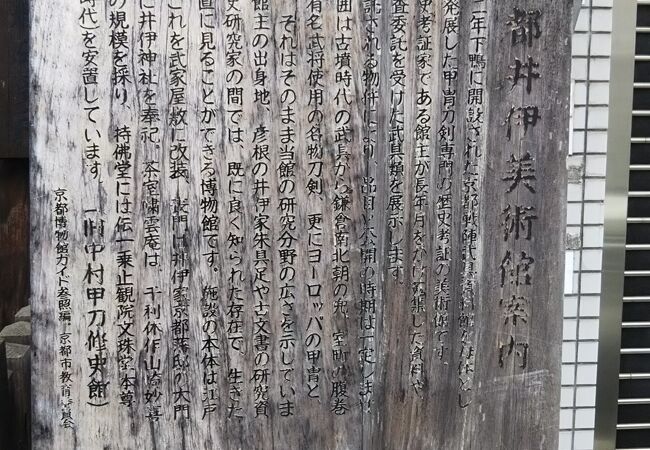 都井伊美術館案内
二年下鴨に開設された京都戦陣武具資料館が母体とし
発展した甲冑刀剣専門の歴史考証の美術館です。
史考証家である館主が長年月をかけ蒐集した資料や
査委託を受けた武具類を展示します。
託される物件により、品目と公開の時期は一定しませ
囲は古墳時代の武具から鎌倉南北朝の兜、室町の腹巻
有名武将使用の名物刀剣、更にヨーロッパの甲冑と
それはそのまま当館の研究分野の広さを示していま
館主の出身地、彦根の井伊家朱具足や古文書の研究資
史研究家の間では、既に良く知られた存在で、生きた
直に見ることができる博物館です。施設の本体は江戸
これを武家屋敷に改装、表門は井伊家京都藩邸の大門
に井伊神社を奉祀、茶室嘯雲庵は、千利休作山崎妙喜
の規模を採り、持佛堂には伝一乗止観院文珠堂本尊
時代)を安置しています。(旧中村甲刀修史館)
京都博物館ガイド参照編・京都市教育委員会